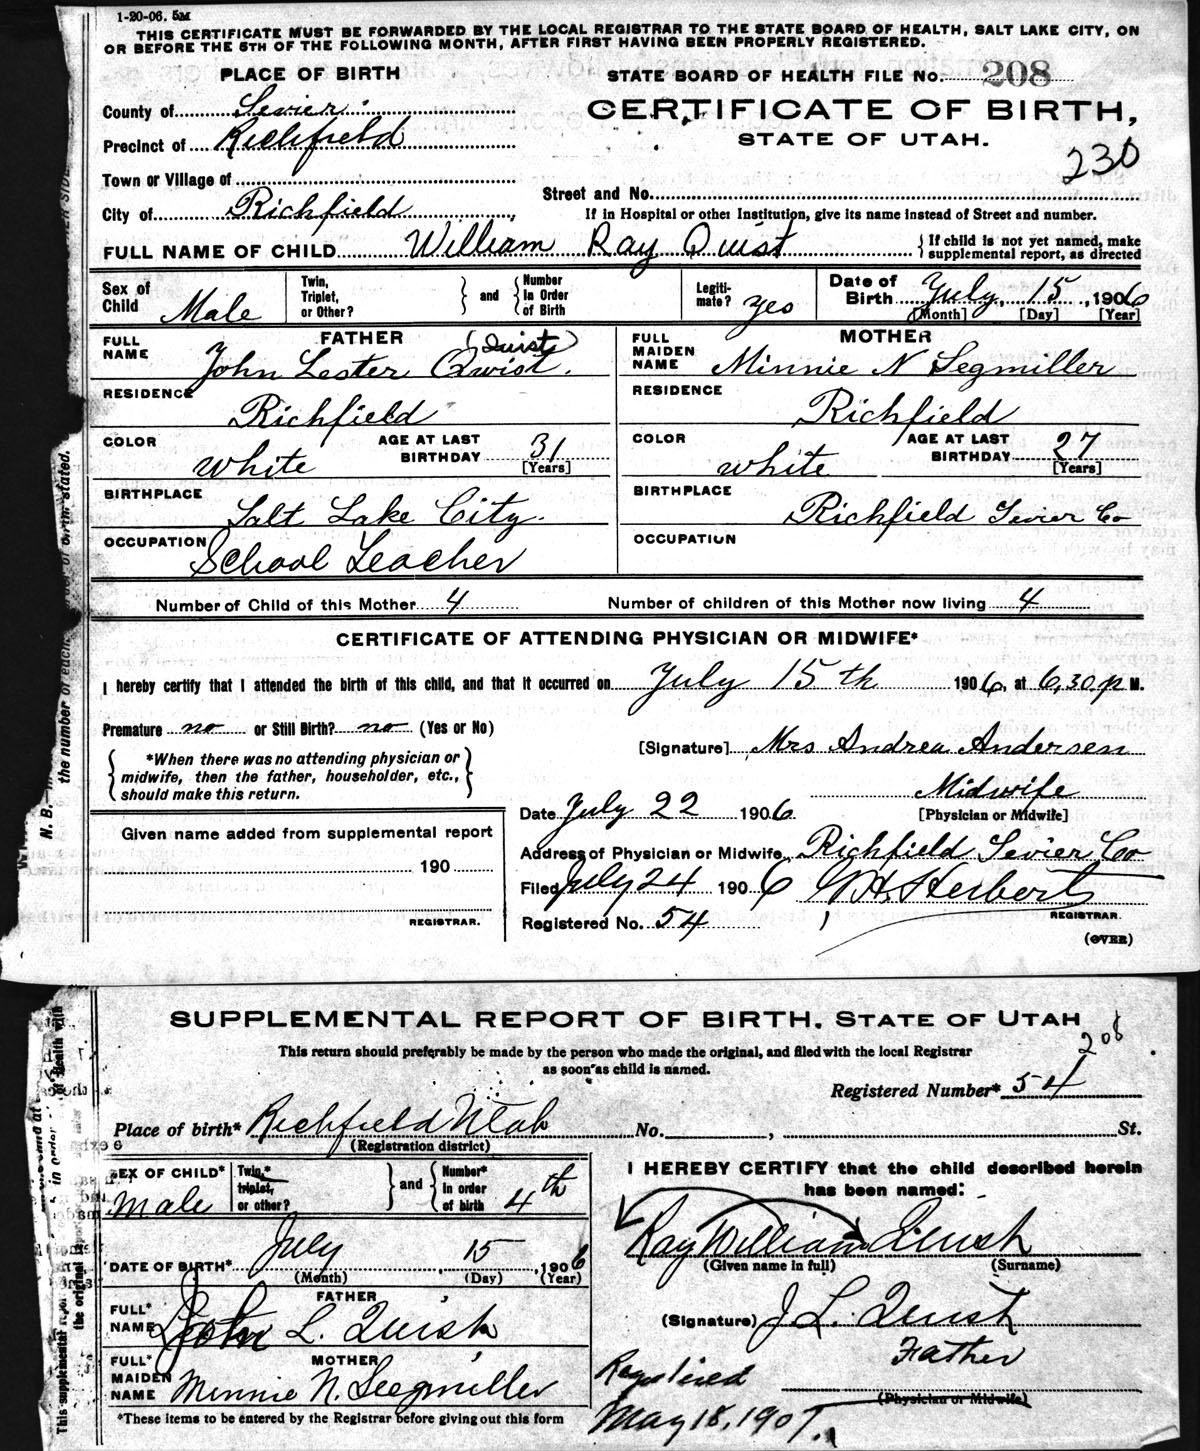 1-20-06. 5M
THIS CERTIFICATE MUST BE FORWARDED BY THE LOCAL REGISTRAR TO THE STATE BOARD OF HEALTH, SALT LAKE CITY, ON
OR BEFORE THE 5TH OF THE FOLLOWING MONTH, AFTER FIRST HAVING BEEN PROPERLY REGISTERED.
PLACE OF BIRTH
STATE BOARD OF HEALTH FILE No. 208
County of Sevier
CERTIFICATE OF BIRTH,
Precinct of Richfield
STATE OF UTAH.
230
Town or Village of
Street and No.
City of Richfield
If in Hospital or other Institution, give its name instead of Street and number.
FULL NAME OF CHILD William Ray Quist
If child is not yet named, make
supplemental report, as directed
Sex of Child Male
Twin, Triplet, or Other?
and
Number In Order of Birth
Legiti-mate? yes
Date of Birth July, 15, 1906
[Month] [Day] [Year]
FATHER
MOTHER
FULL NAME John Lester Qwist. (Quist)
FULL MAIDEN NAME Minnie N Segmiller
RESIDENCE Richfield
RESIDENCE Richfield
COLOR White AGE AT LAST BIRTHDAY 31 [Years]
COLOR white AGE AT LAST BIRTHDAY 27 [Years]
BIRTHPLACE Salt Lake City.
BIRTHPLACE Richfield Sevier Co
OCCUPATION School Teacher
OCCUPATION
Number of Child of this Mother 4 Number of children of this Mother now living 4
CERTIFICATE OF ATTENDING PHYSICIAN OR MIDWIFE*
I hereby certify that I attended the birth of this child, and that it occurred on July 15th 1906, at 6,30 p M.
Premature no or Still Birth? no (Yes or No)
[Signature] Mrs Andrea Andersen
*When there was no attending physician or
midwife, then the father, householder, etc.,
should make this return.
Midwife
[Physician or Midwife]
Date July 22 1906
Given name added from supplemental report
190
REGISTRAR.
Address of Physician or Midwife Richfield Sevier Co
Filed July 24 1906 Herbert
REGISTRAR.
Registered No. 54
(OVER)
N. B.
the number of each
of birth stated.
SUPPLEMENTAL REPORT OF BIRTH. STATE OF UTAH
208
This return should preferably be made by the person who made the original, and filed with the local Registrar
as soon as child is named.
Registered Number* 54
Place of birth* Richfield Utah No. , St.
(Registration district)
SEX OF CHILD* Male
Twin,* triplet, or other?
and
Number* in order of birth 4th
I HEREBY CERTIFY that the child described herein
has been named:
Ray William Quist
(Given name in full) (Surname)
DATE OF BIRTH* July, 15, 1906
(Month) (Day) (Year)
FATHER
FULL* NAME John L. Quist
(Signature) J. L. Quist
Father
(Physician or Midwife)
MOTHER
FULL* MAIDEN NAME Minnie N. Segmiller
Registered
May 18, 1907.
*These items to be entered by the Registrar before giving out this form
This supplemental
the original